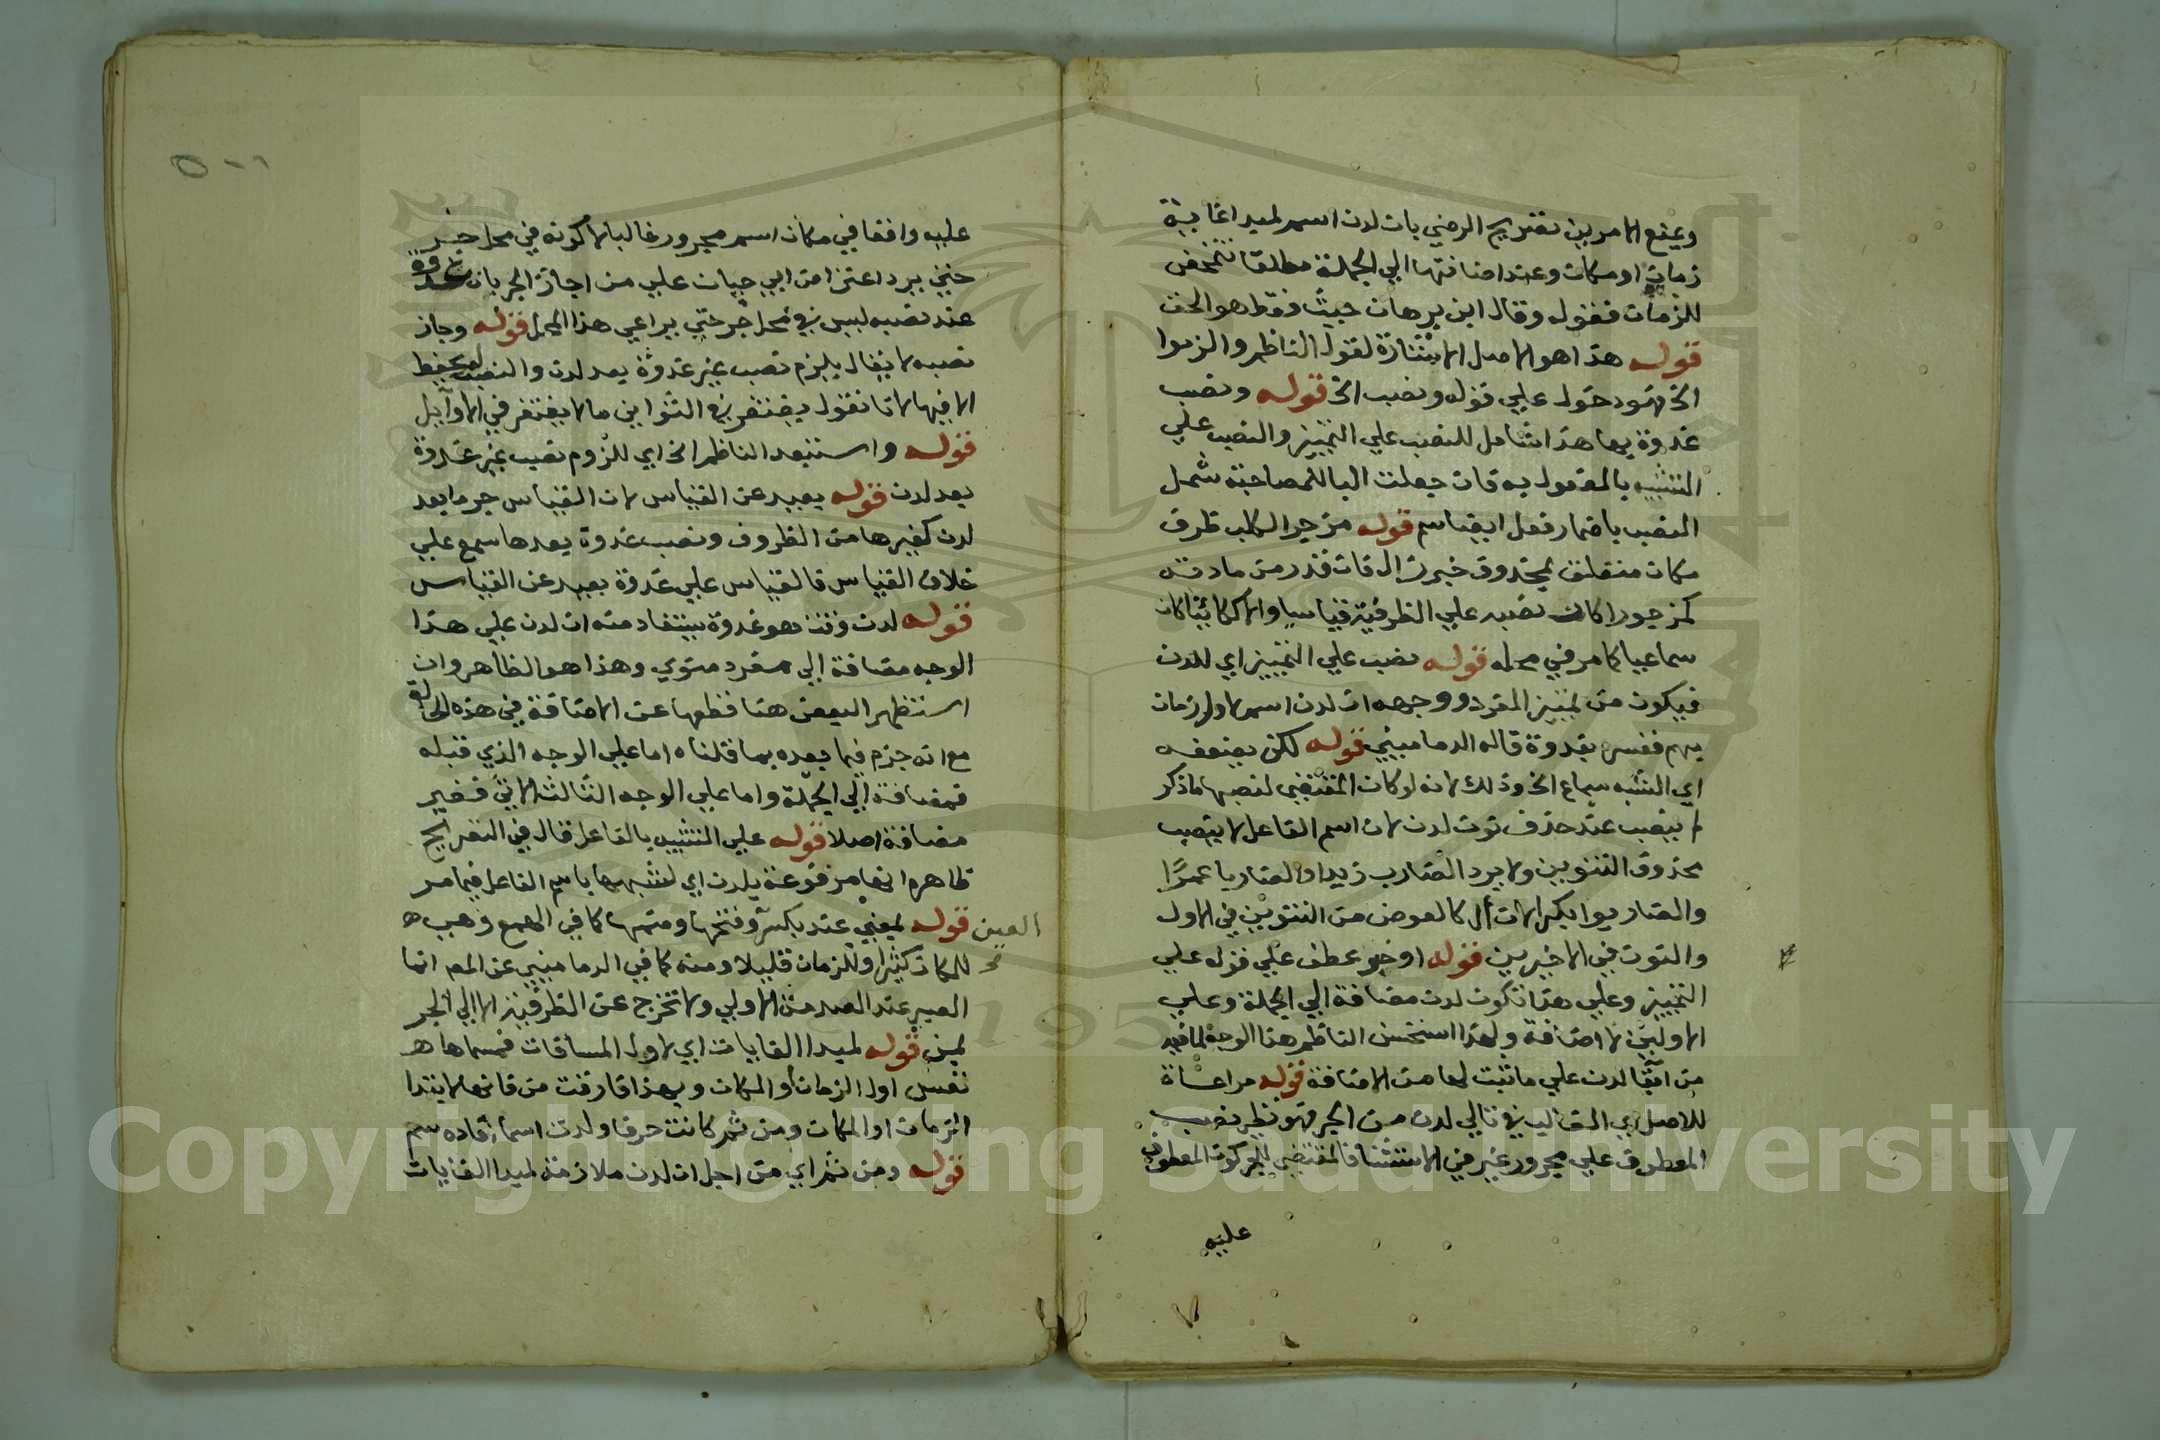 ويمنع الامرين تقريح الرضي بان لدن اسم لمبدا غاية
زمان او مكان وعند اضافتها الي الجملة مطلقا تتمحض
للزمان فقوله وقال ابن برهان حيث فقط هو الحق
قوله هذا هو الاصل لقول الناظم والزموا
الخ قوله ونصب الخ قوله ونصب
غدوة بها هذا شامل للنصب علي التمييز والنصب علي
التشبيه بالمفعول به فان جعلت البا للمصاحبة شمل
النصب باضمار فعل ايضا سم قوله مزجر الكلب ظرف
مكان متعلق بمحذوف خبر زال فان قدر من مادته
كمزجورا كان نصبه علي الظرفية قياسيا والا ككائنا كان
سماعيا كما مر في محله قوله نصب علي التمييز اي للدن
فيكون من تمييز المفرد ووجهه ان لدن اسم لاول زمان
مبهم ففسر بغدوة قاله الدماميني قوله لكن يضعفه
اي الشبه سماع الخ وذلك لانه لو كان المقتضي لنصبها ما ذكر
لم ينصب عند حذف نون لدن لان اسم الفاعل لا ينصب
محذوف التنوين ولا يرد الضارب زيدا والضاربا عمرًا
والضاربوا بكرا لان أل كالعوض من التنوين في الاول
والنون في الاخيرين قوله او خبر عطف علي قوله علي
التمييز وعلي هذا تكون لدن مضافة الي الجملة وعلي
الاولين لا اضافة ولهذا استحسن الناظم هذا الوجه لما فيه
من ابقا لدن علي ما ثبت لها من الاضافة قوله مراعاة
للاصل اي الغالب في تالي لدن من الجر فهو نظير نصب
المعطوف علي مجرور غير في الاستثنا المقتضي لجر كون المعطوف
عليه
١٠٥
عليه واقعا في مكان اسم مجرور غالبا لا كونه في محل جر
حتي يرد اعتراض ابي حيان علي من اجاز الجر بان غدوة
عند نصبه ليس في محل جر حتي يراعي هذا المحل قوله وجاز
نصبه لا يقال يلزم نصب غير غدوة بعد لدن والنصب لم يحفظ
الا فيها لانا نقول يغتفر في الثواني ما لا يغتفر في الاوايل
قوله واستبعد الناظم الخ اي للزوم نصب غير غدوة
بعد لدن قوله بعيد عن القياس لان القياس جر ما بعد
لدن كغيرها من الظروف ونصب غدوة بعدها سمع علي
خلاف القياس فالقياس علي غدوة بعيد عن القياس
قوله لدن وقت هو غدوة يستفاد منه ان لدن علي هذا
الوجه مضافة الي مفرد منوي وهذا هو الظاهر وان
استظهر البعض هنا قطعها عن الاضافة في هذه الحالة
مع انه جزم فيما بعده بما قلناه اما علي الوجه الذي قبله
فمضافة الي الجملة واما علي الوجه الثالث الاتي فغير
مضافة اصلا قوله علي التشبيه بالفاعل قال في التصريح
ظاهره انها مرفوعة بلدن اي لشبهها باسم الفاعل فيما مر
قوله بمعني عند بكسر وفتحها وضمها كما في الهمع وهي
العين
للمكان كثيرا وللزمان قليلا ومنه كما في الدماميني عن المصر انما
الصبر عند الصدمة الاولي ولا تخرج عن الظرفية الا الي الجر
بمن قوله لمبدا الغايات اي لاول المسافات فمسماها
نفس اول الزمان أو المكان وبهذا فارقت من فانها لابتدا
الزمان او المكان ومن ثم كانت حرفا ولدن اسما افاده سم
قوله ومن ثم اي من اجل ان لدن ملازمة لمبدا الغايات
Copyright © King Saud University